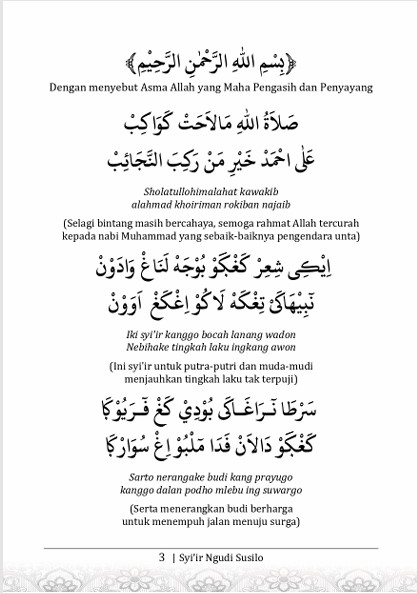 ﴿بِسْمِ اللهِ الرَّحْمٰنِ الرَّحِيْمِ﴾
Dengan menyebut Asma Allah yang Maha Pengasih dan Penyayang
صَلَاةُ اللهِ مَالَاحَتْ كَوَاكِبْ
عَلٰى احْمَدْ خَيْرِ مَنْ رَكِبَ النَّجَائِبْ
Sholatullohimalahat kawakib
alahmad khoiriman rokiban najaib
(Selagi bintang masih bercahaya, semoga rahmat Allah tercurah
kepada nabi Muhammad yang sebaik-baiknya pengendara unta)
اِيْڪِى شِعِرْ كَڠْݢَوْ بُوْجَهْ لَنَاڠْ وَادَوْنْ
نَۤبِيْهَاكَىْ تِڠْكَهْ لَاكُوْ اِڠْكَڠْ اَوَوْنْ
Iki syi’ir kanggo bocah lanang wadon
Nebihake tingkah laku ingkang awon
(Ini syi’ir untuk putra-putri dan muda-mudi
menjauhkan tingkah laku tak terpuji)
سَرْطَا نَـرَاڠَـاكَى بُوْدِيْ كَڠْ فَـرَيُوْݢَا
كَڠْݢَوْ دَالَانْ فَدَا مْلَبُوْ اِڠْ سُوَارْݢَا
Sarto nerangake budi kang prayugo
kanggo dalan podho mlebu ing suwargo
(Serta menerangkan budi berharga
untuk menempuh jalan menuju surga)
3 | Syi’ir Ngudi Susilo